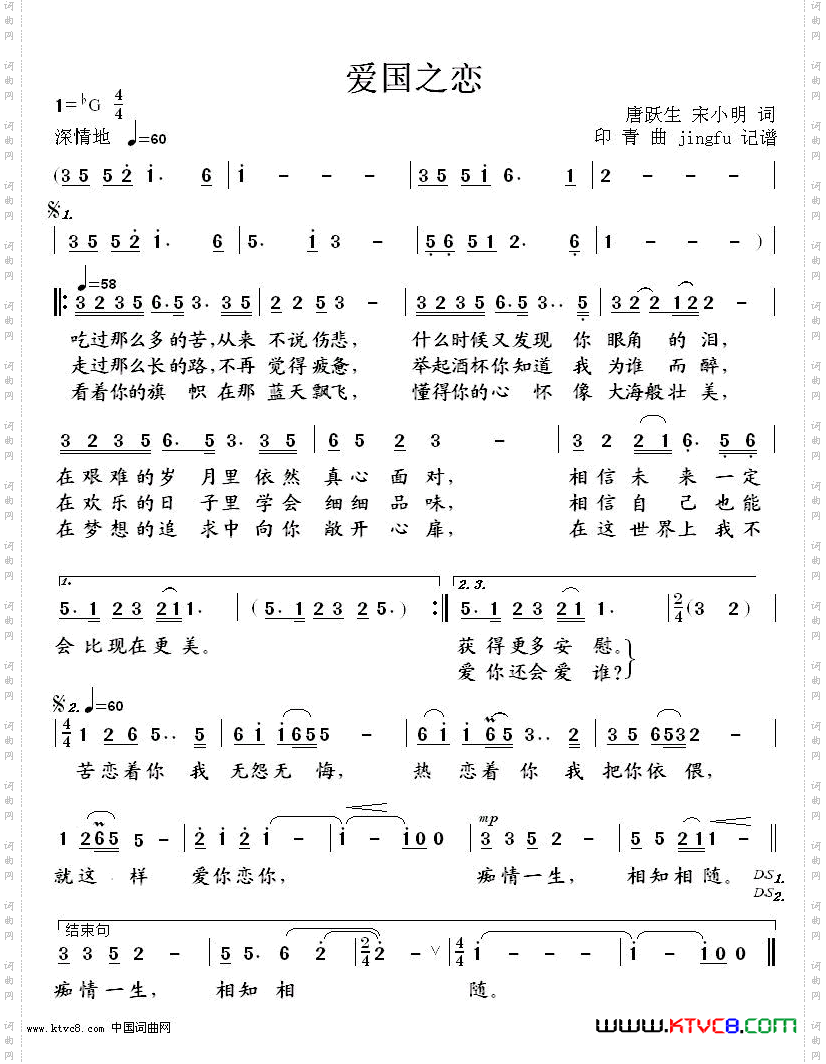 爱国之恋
1=♭G 4/4
唐跃生 宋小明 词
深情地 ♩=60
印 青 曲 jingfu 记谱
(3 5 5 2 1. 6 | 1 - - - | 3 5 5 1 6. 1 | 2 - - - |
𝄋1.
| 3 5 5 2 1. 6 | 5. 1 3 - | 5 6 5 1 2. 6 | 1 - - - )
♩=58
‖: 3 2 3 5 6. 5 3. 3 5 | 2 2 5 3 - | 3 2 3 5 6. 5 3.. 5 | 3 2 2 1 2 2 - |
吃过那么多的苦,从来 不说伤悲, 什么时候又发现 你 眼角 的 泪,
走过那么长的路,不再 觉得疲惫, 举起酒杯你知道 我 为谁 而 醉,
看着你的旗 帜 在那 蓝天飘飞, 懂得你的心 怀 像 大海般壮 美,
3 2 3 5 6. 5 3. 3 5 | 6 5 2 3 - | 3 2 2 1 6. 5 6 |
在艰难的岁 月里 依然 真心 面 对, 相信 未 来 一定
在欢乐的日 子里 学会 细细 品 味, 相信 自 己 也能
在梦想的追 求中 向你 敞开 心 扉, 在这 世界上 我不
1. 2. 3.
5. 1 2 3 2 1 1. | ( 5. 1 2 3 2 5. ) :‖ 5. 1 2 3 2 1 1. | 2/4 (3 2) |
会 比现在更 美。 获 得更多安 慰。
爱 你还会爱 谁?
𝄋2. ♩=60
| 4/4 1 2 6 5.. 5 | 6 1 1 6 5 5 - | 6 1 1 6 5 3.. 2 | 3 5 6 5 3 2 - |
苦恋着你 我 无怨无 悔, 热 恋着 你 我 把你依 偎,
1 2 6 5 5 - | 2 1 2 1 - | 1 - 1 0 0 | mp 3 3 5 2 - | 5 5 2 1 1 - ‖
就这 样 爱你恋你, 痴情一生, 相知相 随。 D.S1.
D.S2.
结束句
3 3 5 2 - | 5 5. 6 2 | 2/4 2 - ∨ | 4/4 1 - - - | 1 - 1 0 0 ‖
痴情一生, 相知 相 随。
www.ktvc8.com 中国词曲网
WWW.KTVC8.COM
词曲网